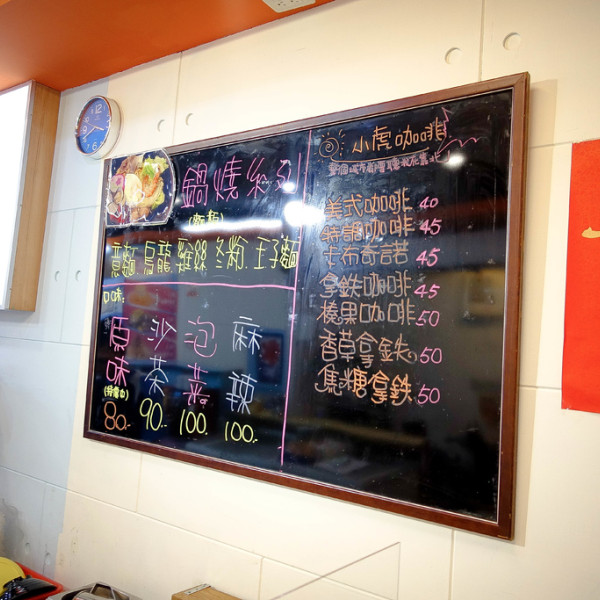 鍋燒系列
意麵.烏龍.雞絲.冬粉.王子麵
口味:
原味 沙茶 泡菜 麻辣
80.- 90.- 100.- 100.-
小虎咖啡
美式咖啡 40
特調咖啡 45
卡布奇諾 45
拿鐵咖啡 45
榛果咖啡 50
香草拿鐵 50
焦糖拿鐵 50